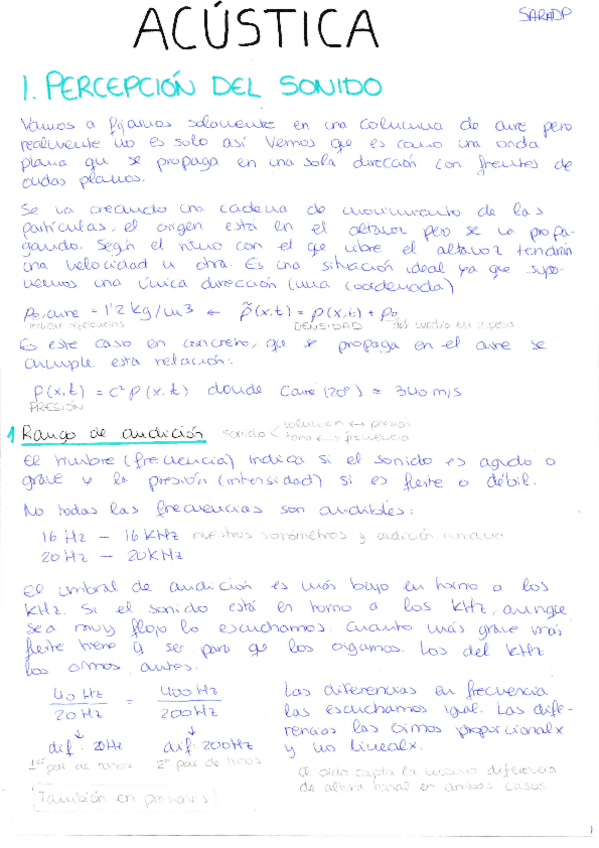 ACÚSTICA
SARADP
1. PERCEPCIÓN DEL SONIDO
Vamos a fijarnos solamente en una columna de aire pero
realmente no es solo así. Vemos que es como una onda
plana que se propaga en una sola dirección con frentes de
ondas planos.
Se va creando una cadena de movimiento de las
partículas, el origen está en el altavoz pero se va propa-
gando. Según el ritmo con el que vibre el altavoz tendrán
una velocidad u otra. Es una situación ideal ya que supo-
nemos una única dirección (una coordenada)
ρo,aire = 1'2 kg/m3 ← ρ̃(x,t) = ρ(x,t) + ρo
DENSIDAD del medio en reposo
Es este caso en concreto, que se propaga en el aire se
cumple esta relación:
P(x,t) = c²ρ(x,t) donde Caire (20º) ≈ 340 m/s
PRESIÓN
1 Rango de audición sonido < volumen ↔ presión
tono ↔ frecuencia
El timbre (frecuencia) indica si el sonido es agudo o
grave y la presión (intensidad) si es fuerte o débil.
No todas las frecuencias son audibles:
16 Hz - 16 KHz nuestros sonómetros y audición humana
20 Hz - 20 KHz
El umbral de audición es más bajo en torno a los
KHz. Si el sonido está en torno a los KHz, aunque
sea muy flojo lo escuchamos. Cuanto más grave más
fuerte tiene q ser para que los oigamos. Los del KHz
los oímos antes.
40 Hz / 20 Hz = 400 Hz / 200 Hz
dif: 20Hz dif: 200Hz
1er par de tonos 2º par de tonos
También en presiones
Las diferencias en frecuencia
las escuchamos igual. Las dife-
rencias las oímos proporcionalx
y no linealx.
el oído capta la misma diferencia
de altura tonal en ambos casos
1